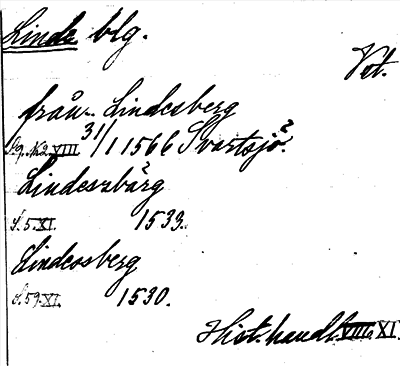 Linde blg.
Vst.
från Lindesberg
S. 92. VIII 31/1 1566 Svartsjö?
Lindeszbärg
S. 5. XI. 1533.
Lindessberg
S. 59. XI. 1530.
Hist. handl. VIII. XI.